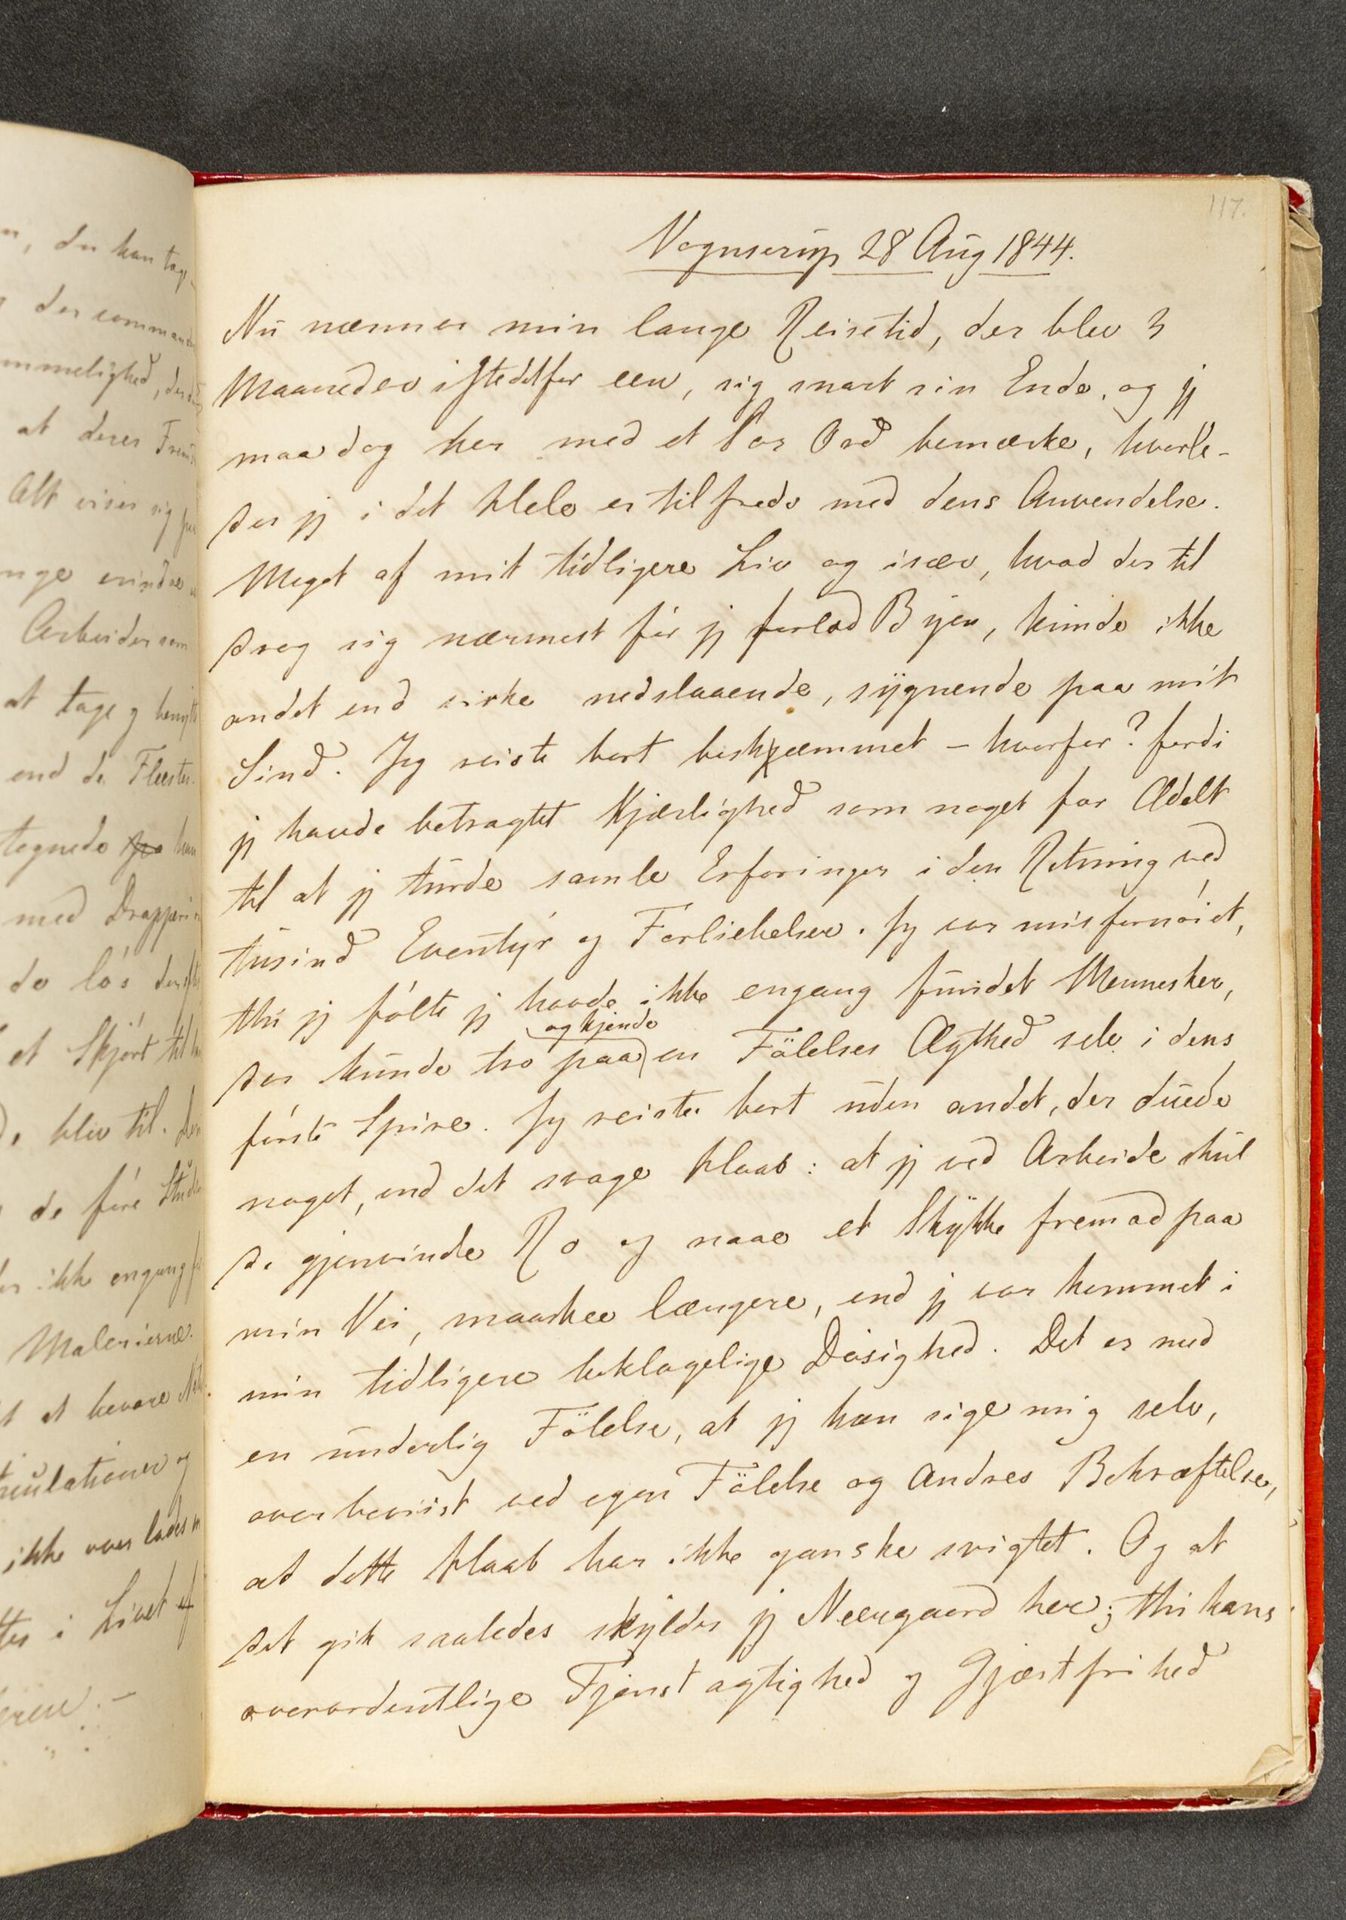 117.
Vognserup 28 Aug 1844.
Nu nærmer min lange Reisetid, der blev 3
Maaneder istedetfor een, sig snart sin Ende, og jeg
maa dog her med et Par Ord bemærke, hvorle-
des jeg i det Hele er tilfreds med dens Anvendelse.
Meget af mit tidligere Liv og især, hvad der til
drog sig nærmest før jeg forlod Byen, kunde ikke
andet end virke nedslaaende, sygnende paa mit
Sind. Jeg reiste bort beskæmmet – hvorfor? fordi
jeg havde betragtet Kjærlighed som noget for Ædelt
til at jeg turde samle Erfaringer i den Retning ved
tusind Eventyr og Forliebelser. Jeg var misfornøiet,
thi jeg følte jeg havde ikke engang fundet Mennesker,
og kjende
der kunde tro paa en Følelses Ægthed selv i dens
første Spire. Jeg reiste bort uden andet, der duede
noget, end det svage Haab: at jeg ved Arbeide skul
de gjenvinde Ro og naae et Stykke fremad paa
min Vei, maaskee længere, end jeg var kommet i
min tidligere beklagelige Døsighed. Det er med
en underlig Følelse, at jeg kan sige mig selv,
overbeviist ved egen Følelse og Andres Bekræftelse,
at dette Haab har ikke ganske svigtet. Og at
det gik saaledes skylder jeg Neergaard her; thi hans
overordentlige Tjenstagtighed og Gjæstfrihed